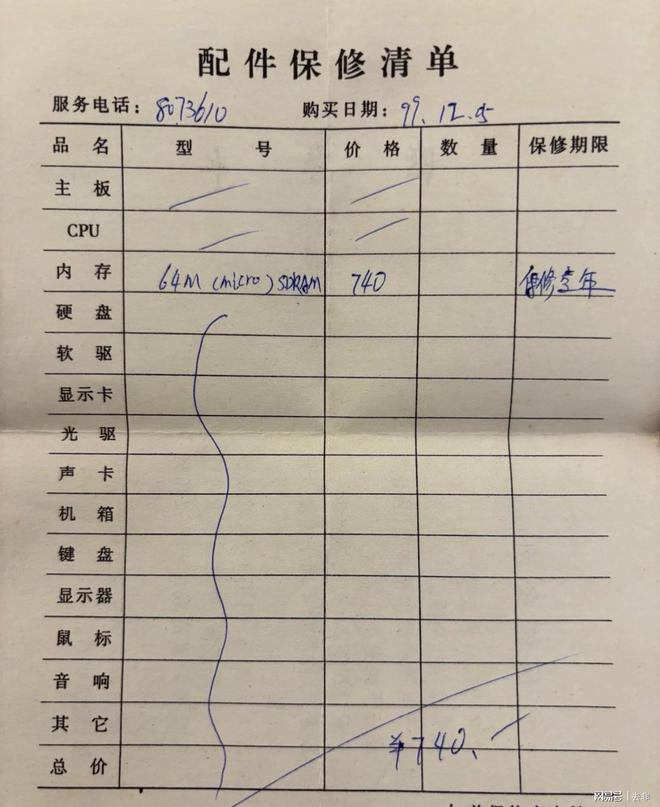 配件保修清单
服务电话：8073610 购买日期：99.12.05
品名 型号 价格 数量 保修期限
主板
CPU
内存 64M (micro) SDRAM 740 保修壹年
硬盘
软驱
显示卡
光驱
声卡
机箱
键盘
显示器
鼠标
音响
其它
总价 ¥740.
网易号 | 去非